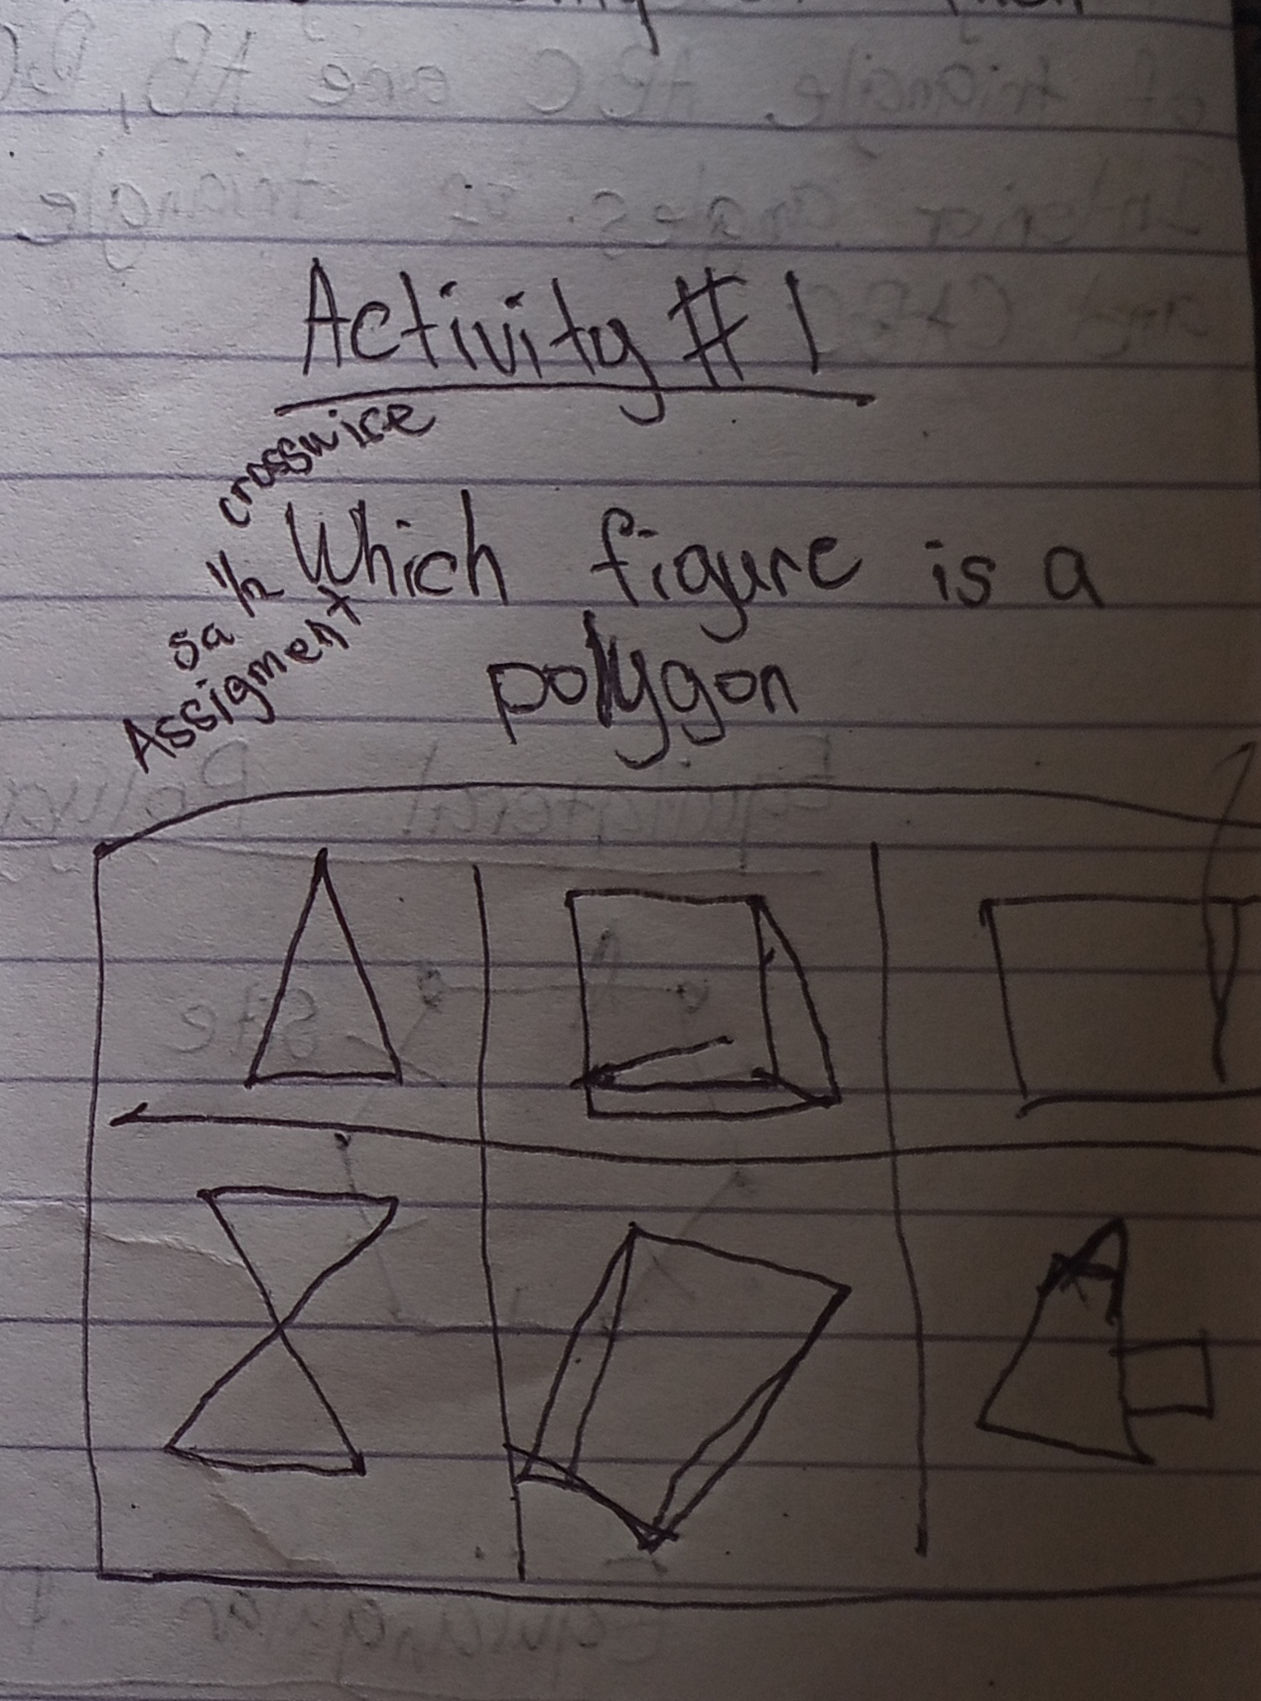 Activity # 1
crosswise
sa 1/2
Assigment
Which figure is a
polygon